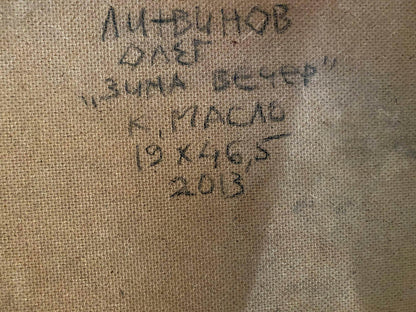 ЛИТВИНОВ
ОЛЕГ
„ЗИМА ВЕЧЕР"
К, МАСЛО
19 х 46,5
2013